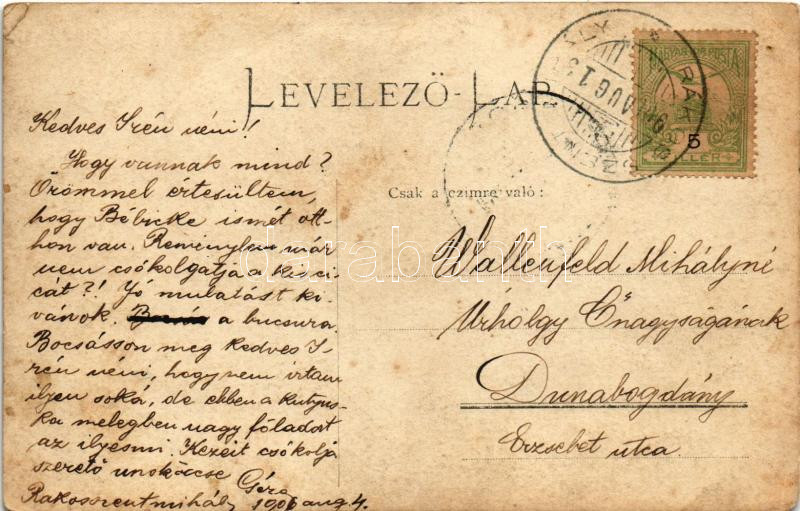 LEVELEZŐ-LAP
MAGYAR KIR. POSTA
5
FILLÉR
AUG 13
Kedves Irén néni!
Hogy vannak mind?
Örömmel értesültem,
hogy Bébicke ismét ott-
hon van. Reménylem már
nem csókolgatja a kis ci-
cát?! Jó mulatást ki-
vánok. a bucsura.
Bocsásson meg kedves I-
rén néni, hogy nem irtam
ilyen soká, de ebben a kutyus-
ka melegben nagy föladat
az ilyesmi. Kezeit csókolja
szerető unokaöccse
Géza
Rakosszentmihály 1906 aug 4.
Csak a czimre való:
Wallenfeld Mihályné
Urhölgy Őnagyságának
Dunabogdány
Erzsébet utca.
darabanth